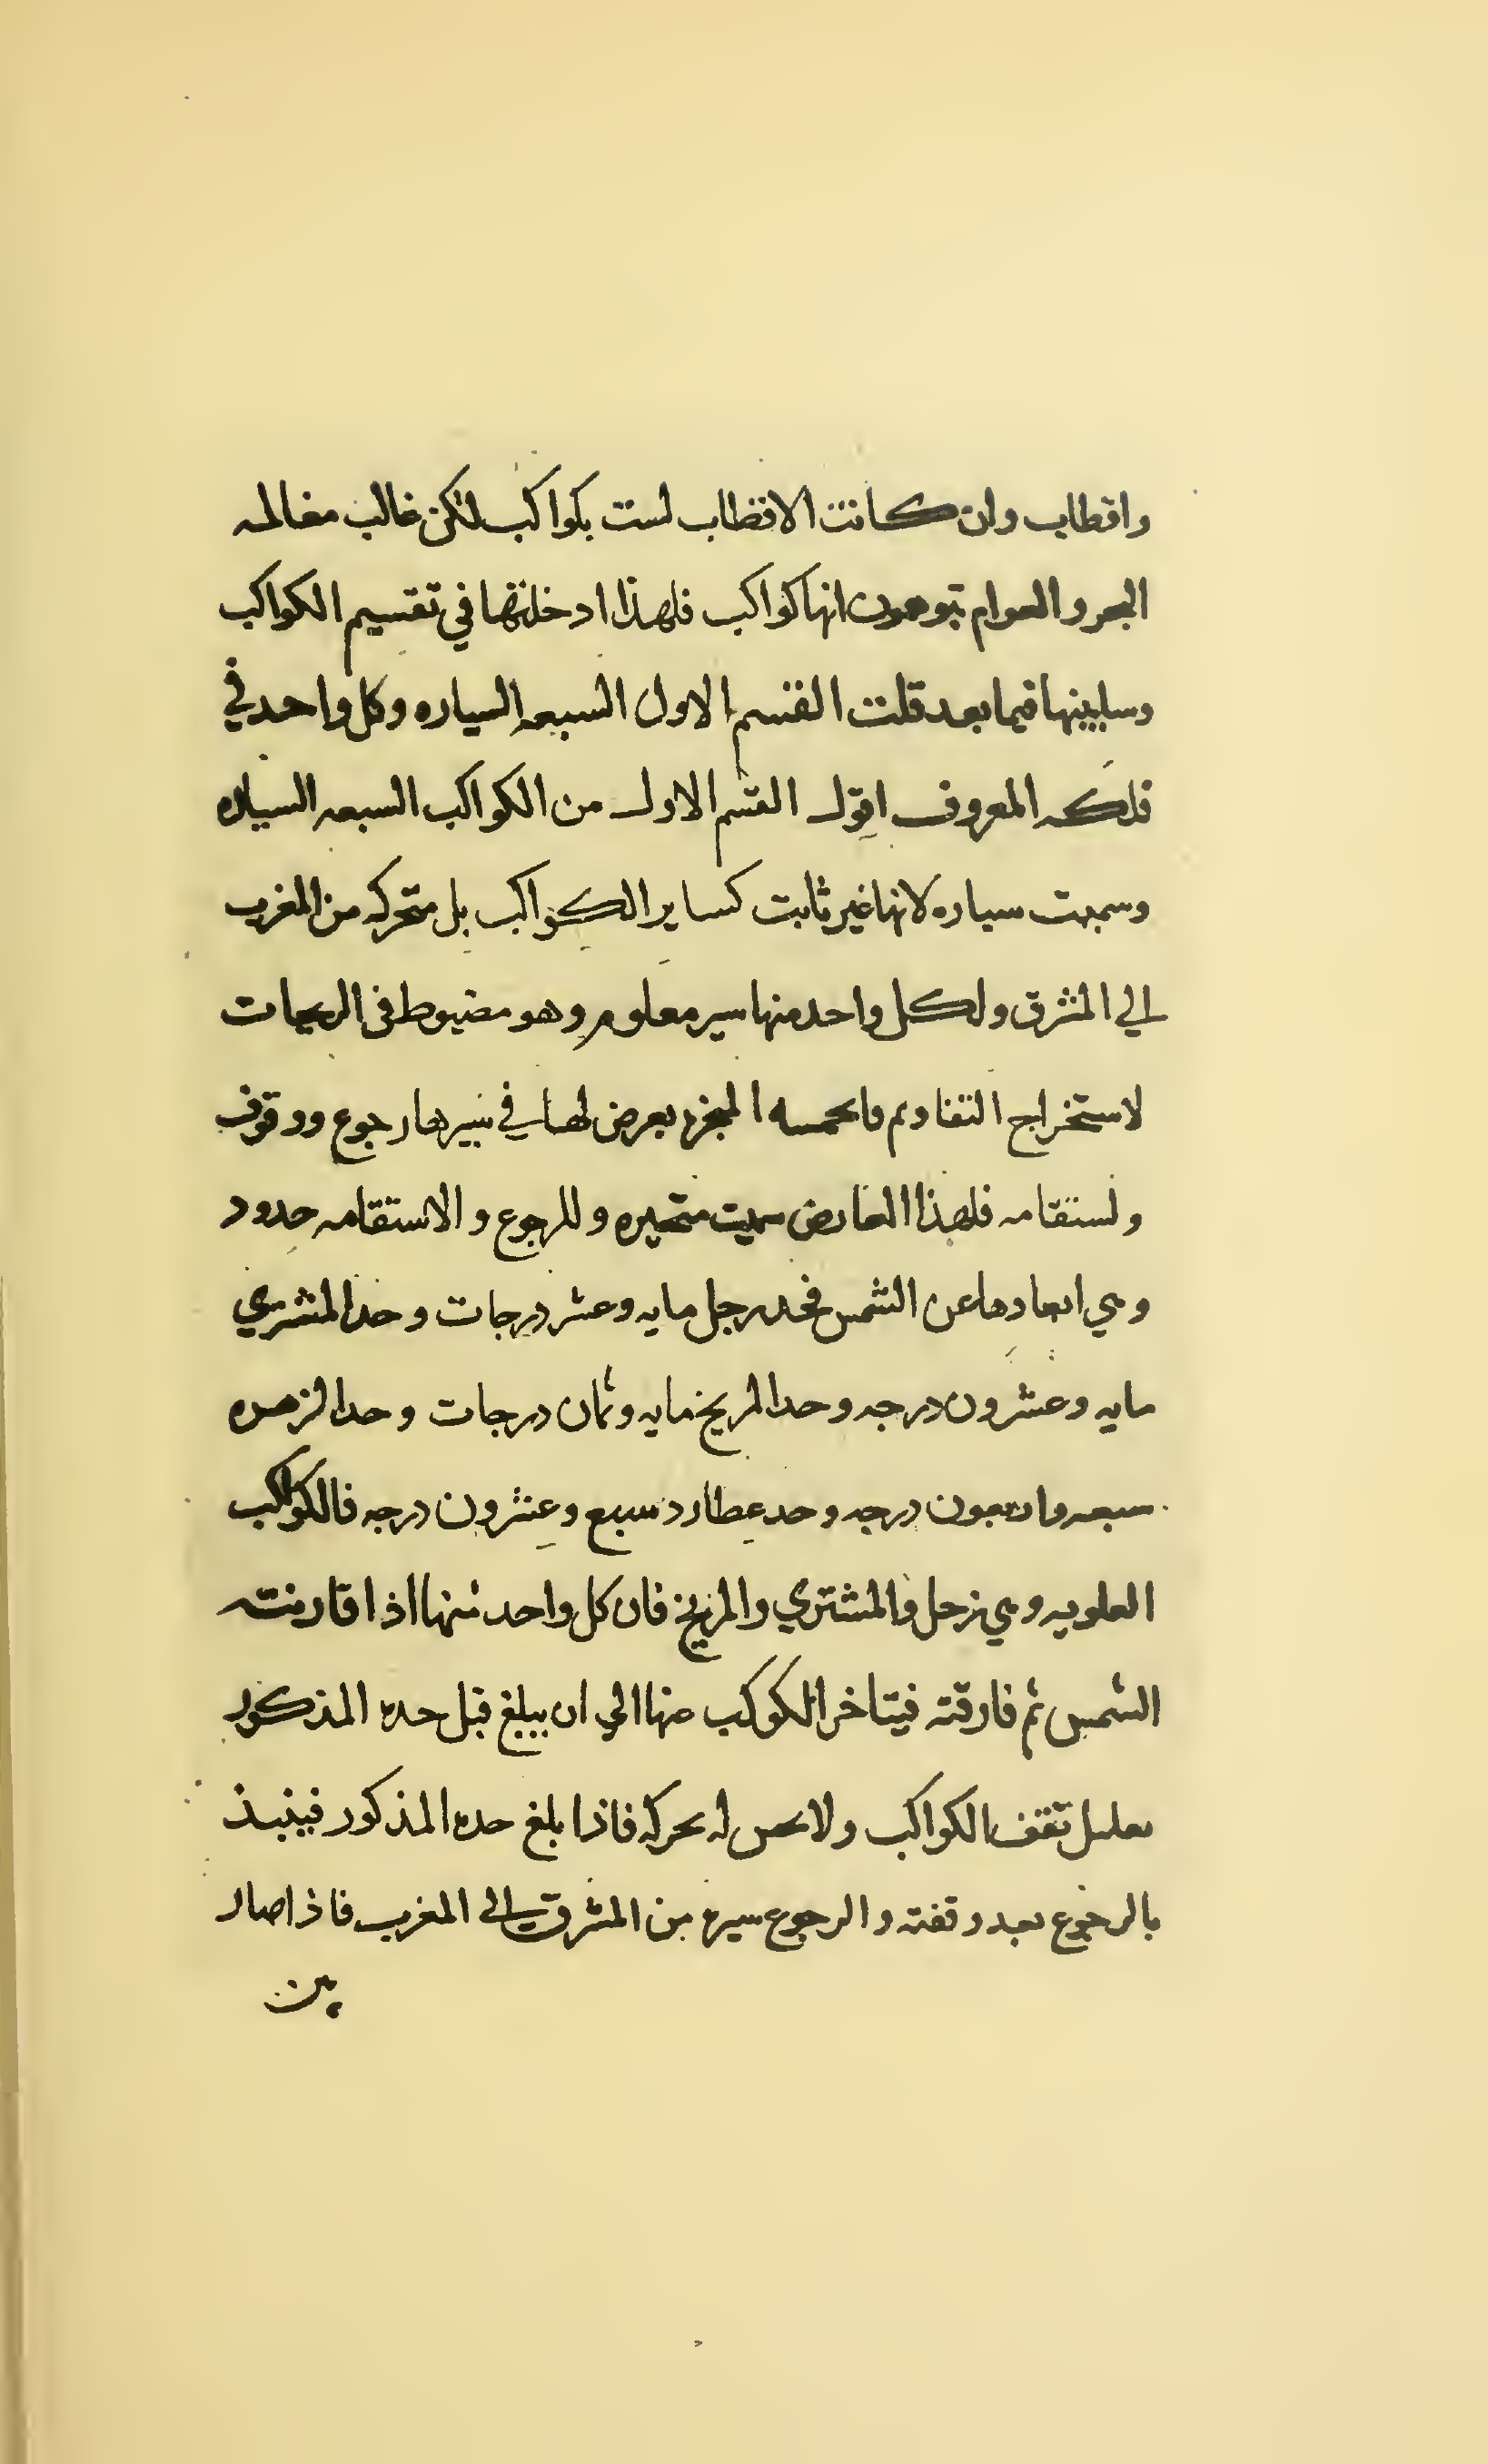 واقطاب وان كانت الاقطاب لست بكواكب لكن غالب معالمه
البحر والعوام يتوهمون انها كواكب فلهذا ادخلتها في تقسيم الكواكب
وسابينها فيما بعد قلت القسم الاول السبعه السياره وكل واحد في
فلكه المعروف اقول القسم الاول من الكواكب السبعه السياره
وسميت سياره لانها غير ثابت كساير الكواكب بل متحركه من المغرب
الي المشرق ولكل واحد منها سير معلوم وهو مضبوط في
لاستخراج التقاويم فالخمسه يعرض لها في سيرها رجوع ووقوف
ولستقامه فلهذا العارض سميت متحيره وللرجوع والاستقامه حدود
وهي ابعادها عن الشمس فحد زحل مايه وعشر درجات وحد المشتري
مايه وعشرون درجه وحد المريخ مايه وثمان درجات وحد الزهره
سبعه واربعون درجه وحد عطارد سبع وعشرون درجه فالكواكب
العلويه وهي زحل والمشتري والمريخ فان كل واحد منها اذا قارنته
الشمس ثم فارقته فيتاخر الكوكب عنها الي ان يبلغ قبل حده المذكور
بقليل تقف الكواكب ولا يحس له بحركه فاذا بلغ حده المذكور
بالرجوع بعد وقفته والرجوع سيره من المشرق الى المغرب فاذا صار
بين